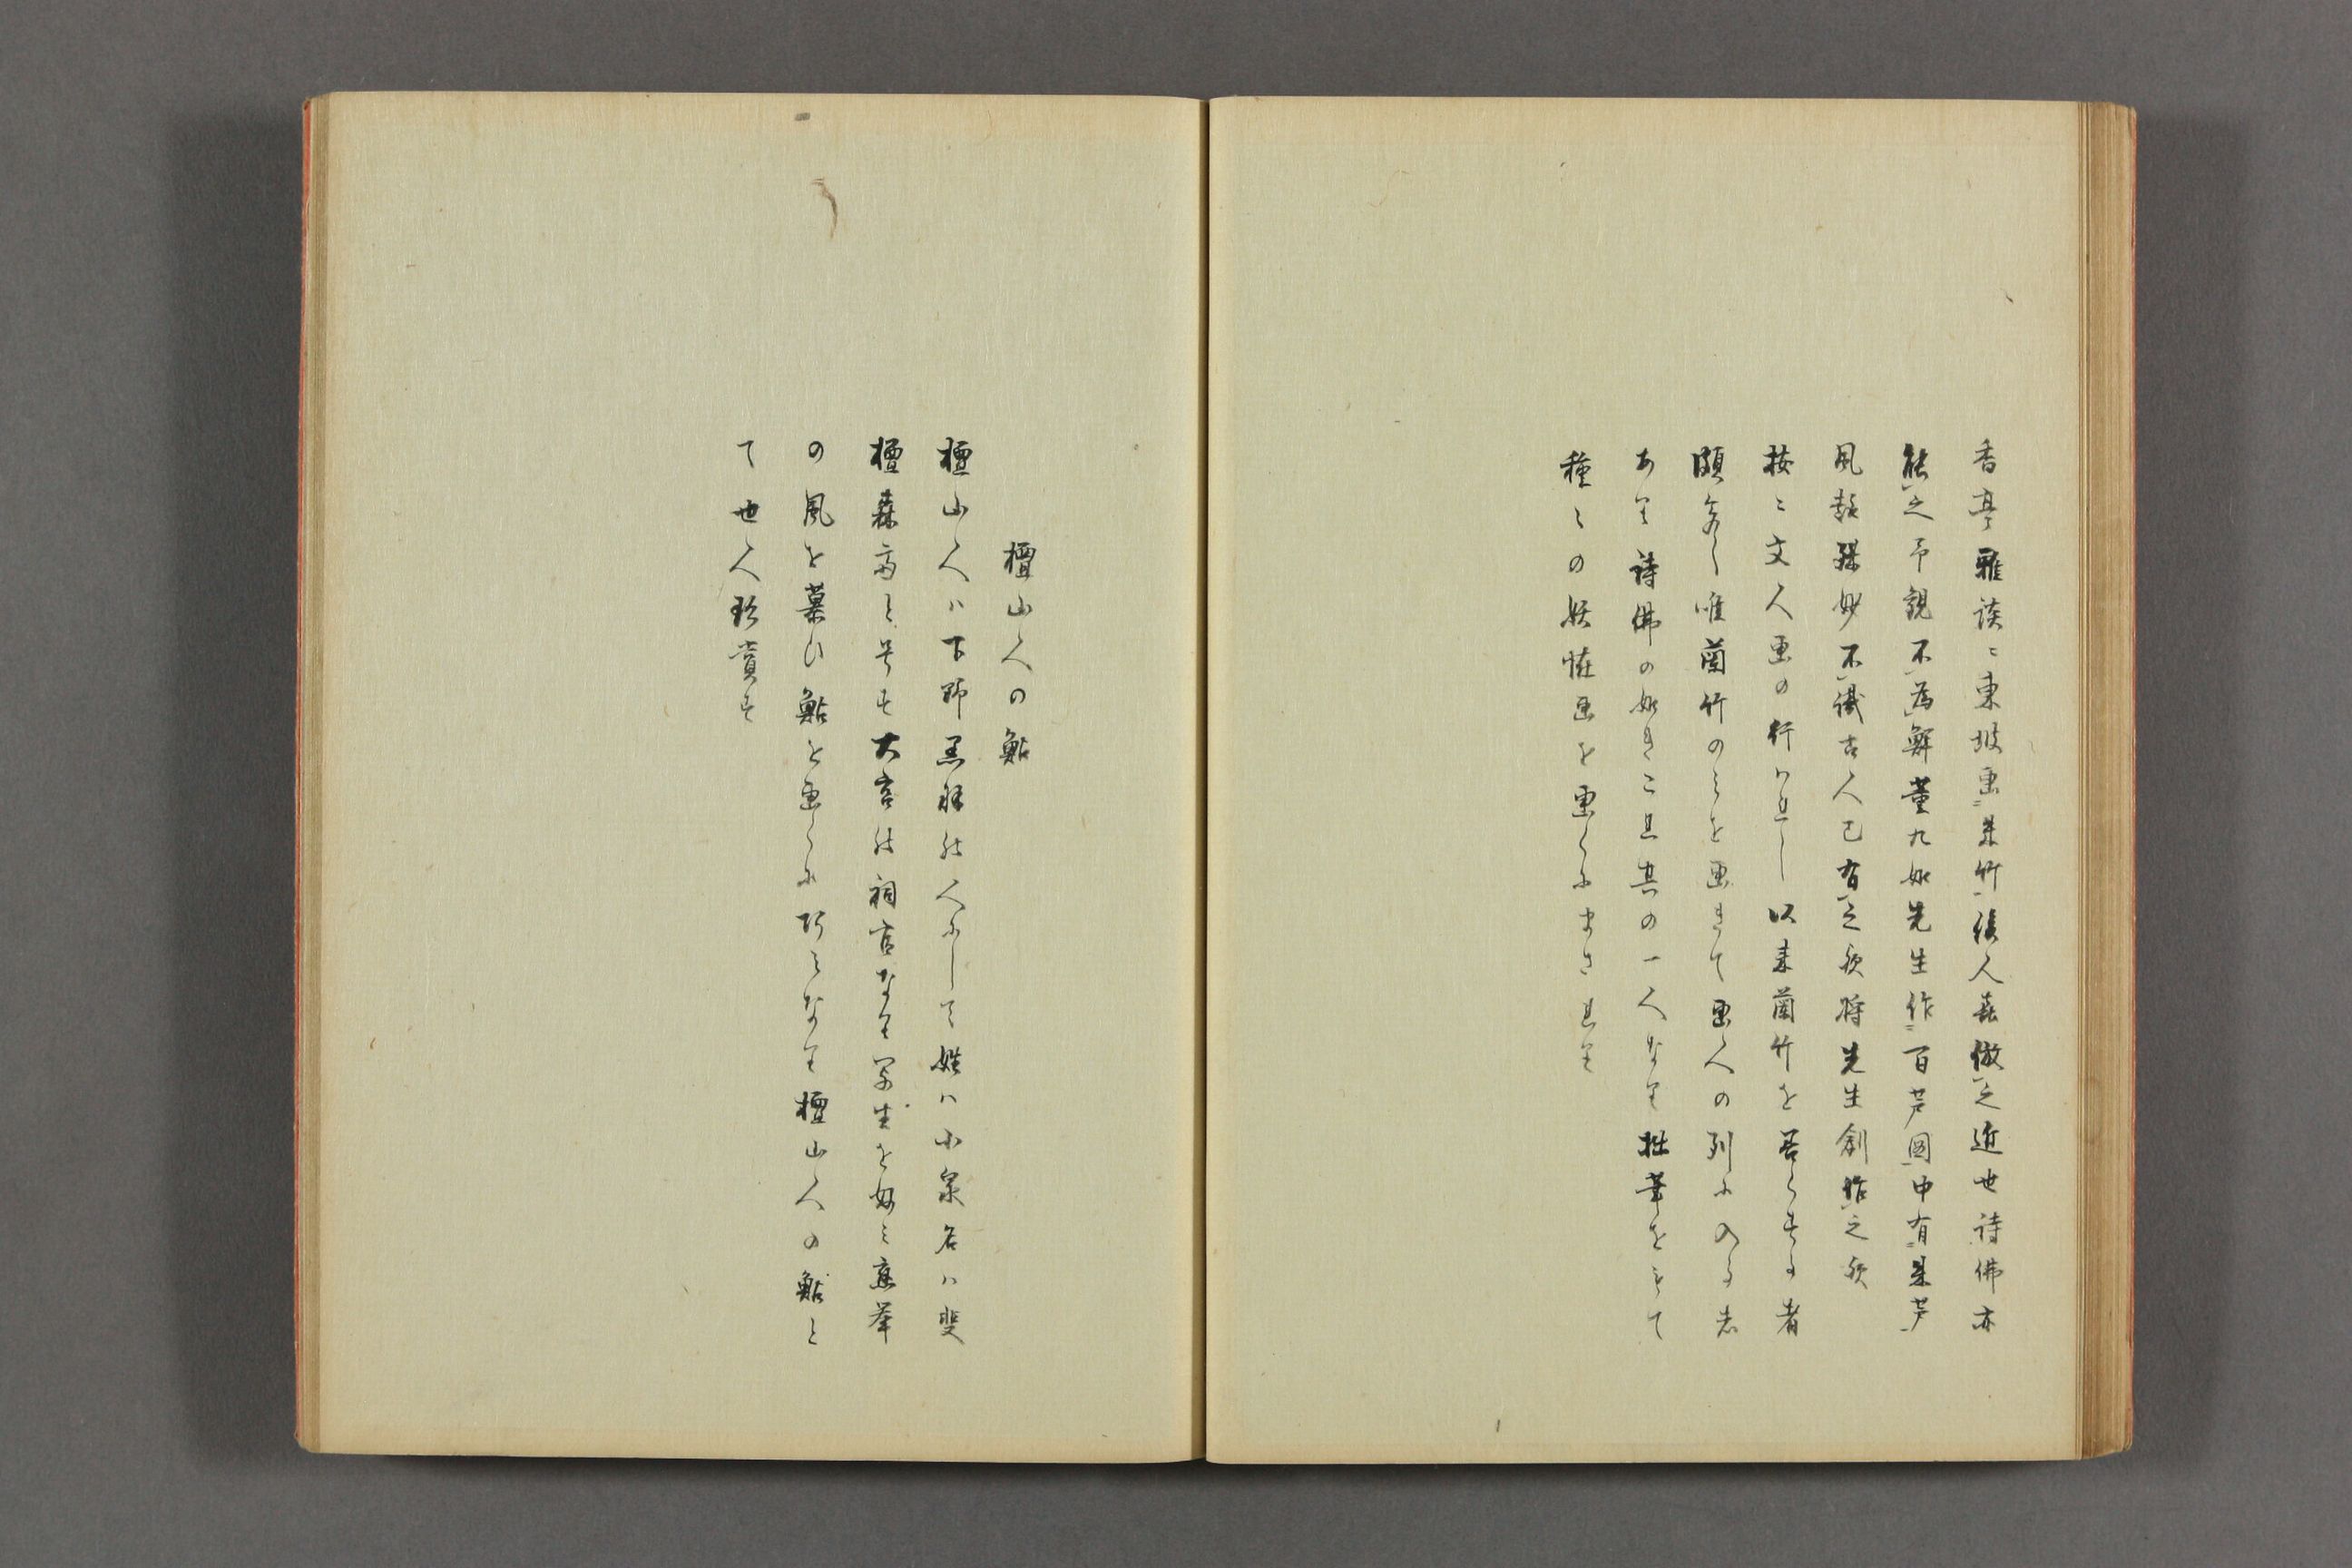 香亭雅談ニ東坡画朱竹後人喜倣之近世詩佛亦
能之予説不為解董九如先生作百芦図中有朱芦
風韻殊妙不識古人已有之欤将先生創作之欤
按ニ文人画の行ハれし以来蘭竹を善くする者
頗多し唯蘭竹のミを画きて画人の列に入る者
あり詩佛の如きこれ其の一人なり拙筆をもて
種々の妖怪画を画くにまされり
檀山人の鮎
檀山人ハ下野黒羽の人にして姓ハ小泉名ハ斐
檀森斎と号す大宮の祠官なり写生を好ミ応挙
の風を慕ひ鮎を画くに巧ミなり檀山人の鮎と
て世人珍賞す